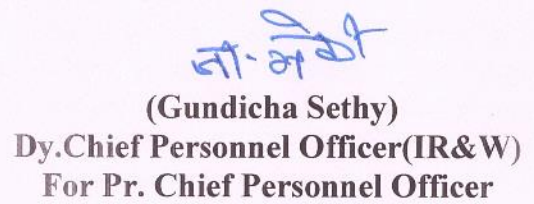 (Gundicha Sethy)
Dy.Chief Personnel Officer(IR&W)
For Pr. Chief Personnel Officer